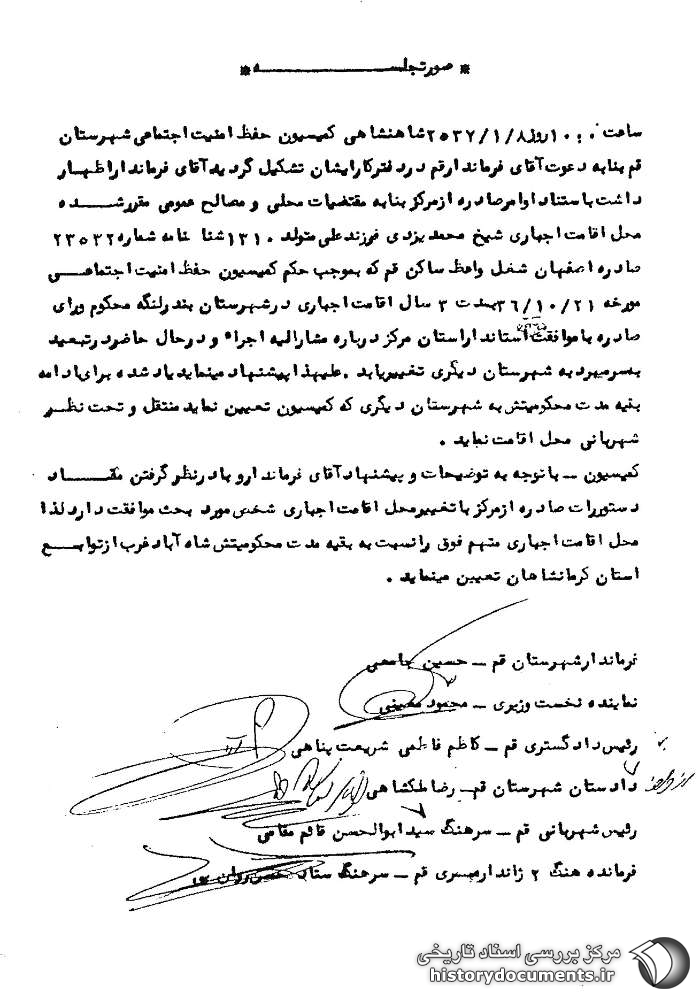 * صورتجلسه *
ساعت ۱۰۰۰ روز ۲۵۳۷/۱/۸ شاهنشاهی کمیسیون حفظ امنیت اجتماعی شهرستان
قم بنا به دعوت آقای فرماندار قم در دفتر کار ایشان تشکیل گردید آقای فرماندار اظهار
داشت با ستناد اوامر صادره از مرکز بنا به مقتضیات محلی و مصالح عمومی مقرر شده
محل اقامت اجباری شیخ محمد یزدی فرزند علی متولد ۱۳۱۰ شنا نامه شماره ۲۳۵۳۲
صادره اصفهان شغل واعظ ساکن قم که بموجب حکم کمیسیون حفظ امنیت اجتماعی
مورخه ۳۶/۱۰/۲۱ بمدت ۳ سال اقامت اجباری در شهرستان بندر لنگه محکوم و رای
صادره با موافقت استاندار استان مرکز درباره مشارالیه اجراء و در حال حاضر در تبعید
بسر میبرد به شهرستان دیگری تغییر یابد . علیهذا پیشنهاد مینماید یاد شده برای ادامه
بقیه مدت محکومیتش به شهرستان دیگری که کمیسیون تعیین نماید منتقل و تحت نظر
شهربانی محل اقامت نماید .
کمیسیون ــ با توجه به توضیحات و پیشنهاد آقای فرماندار و با در نظر گرفتن مفاد
دستورات صادره از مرکز با تغییر محل اقامت اجباری شخص مورد بحث موافقت دارد لذا
محل اقامت اجباری متهم فوق را نسبت به بقیه مدت محکومیتش شاه آباد غرب از توابع
استان کرمانشاهان تعیین مینماید .
فرماندار شهرستان قم ــ حسین جامعی
نماینده نخست وزیری ــ محمود معینی
رئیس دادگستری قم ــ کاظم فاطمی شریعت پناهی
دادستان شهرستان قم ــ رضا ملکشاهی
رئیس شهربانی قم ــ سرهنگ سید ابوالحسن قائم مقامی
فرمانده هنگ ۲ ژاندارمری قم ــ سرهنگ ستاد
مرکز بررسی اسناد تاریخی
historydocuments.ir